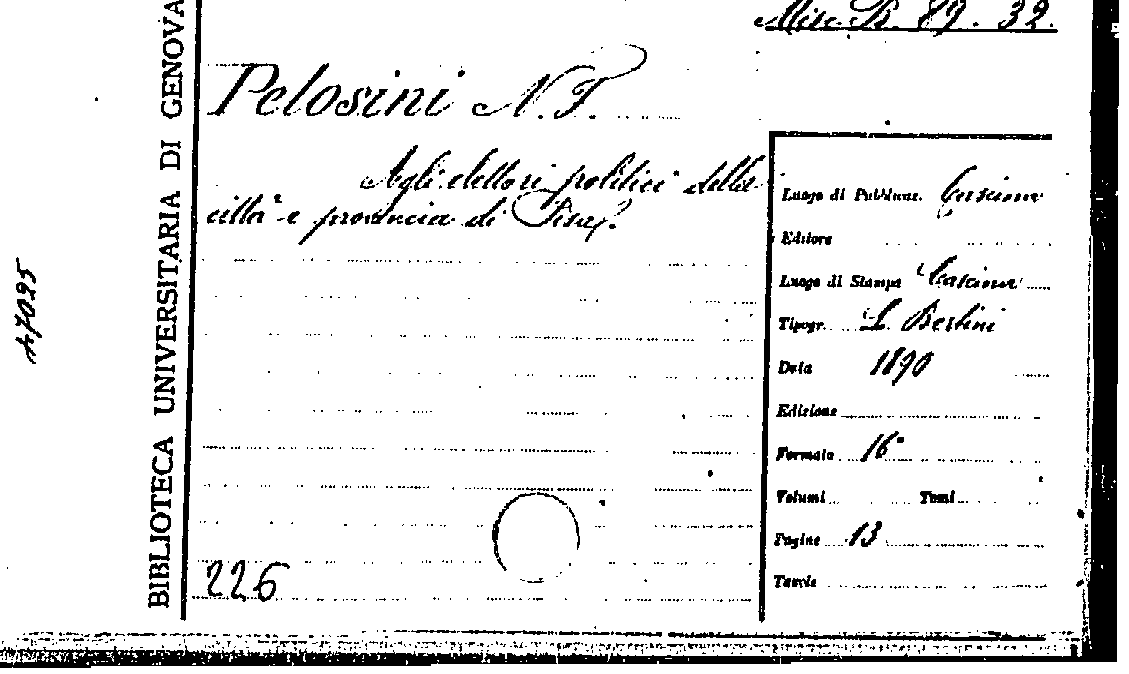 Misc. B. 89. 32.
BIBLIOTECA UNIVERSITARIA DI GENOVA
Pelosini N. F.
Agli elettori politici della
città e provincia di Pisa.
Luogo di Pubblicaz. Cascina
Editore
Luogo di Stampa Cascina
Tipogr. L. Bertini
Data 1890
Edizione
Formato 16°
Volumi Tomi
Pagine 13
Tavole
226
47095